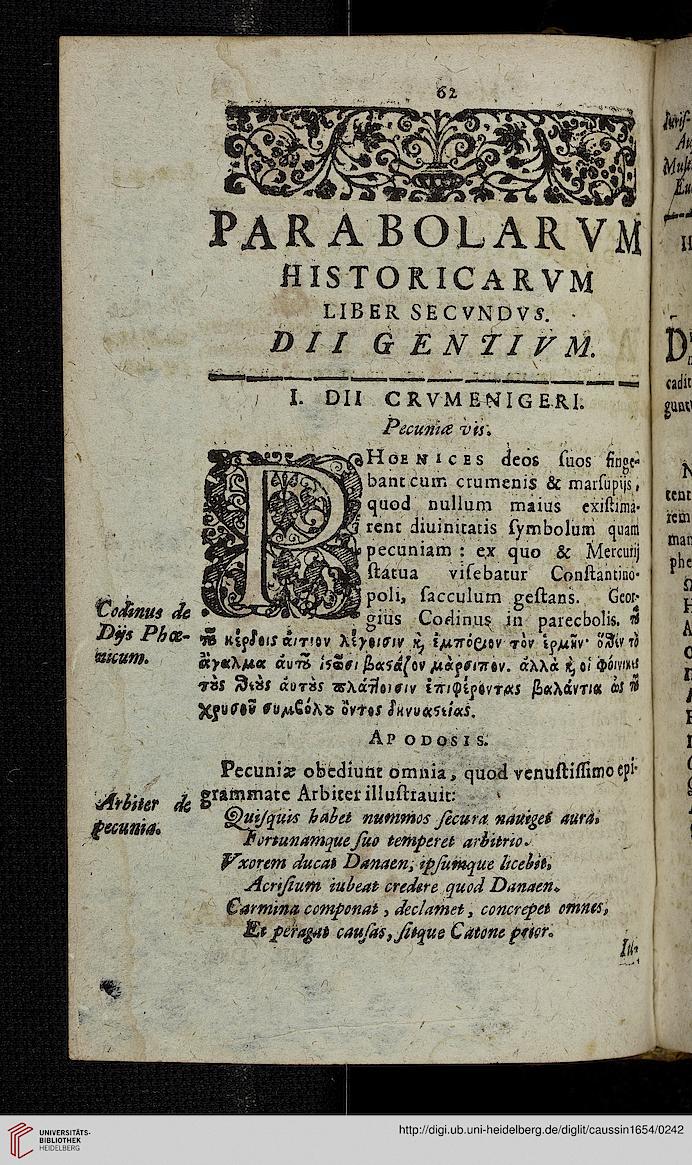 62
PARABOLARVM
HISTORICARVM
LIBER SECVNDVS.
DII GENTIVM.
I. DII CRVMENIGERI.
Pecuniæ vis.
PHOENICES deos suos finge-
bant cum crumenis & marsupijs,
quod nullum maius existima-
rent diuinitatis symbolum quam
pecuniam : ex quo & Mercurij
statua visebatur Constantino-
poli, sacculum gestans. Geor-
gius Codinus in parecbolis. τȣ͂
Codinus de
Dijs Phœ-
nicum.
τȣ͂ κέρδοις ἄιτιον λέγοισιν κ̀, ἐμπόριον τὸν ἑρμῆν· ὅθεν τὸ
ἄγαλμα ἀυτȣ͂ ἱςῶσι βαςάζον μάρσιπον. ἀλλὰ κ̀, οἱ φόινικες
τὰς θεȣ̀ς ἀυτȣ̀ς πλάττοισιν ἐπιφέροντας βαλάντια ὡς τȣ͂
χρυσοῦ συμβόλȣ ὄντος δηνυαςείας.
APODOSIS.
Pecuniæ obediunt omnia, quod venustissimo epi-
grammate Arbiter illustrauit:
Arbiter de
pecunia.
Quisquis habet nummos secura nauiget aura,
Fortunamque suo temperet arbitrio.
Vxorem ducat Danaen, ipsumque licebit,
Acrisium iubeat credere quod Danaen.
Carmina componat, declamet, concrepet omnes,
Et peragat causas, sitque Catone prior.
Iu-
UNIVERSITÄTS-
BIBLIOTHEK
HEIDELBERG
http://digi.ub.uni-heidelberg.de/diglit/caussin1654/0242